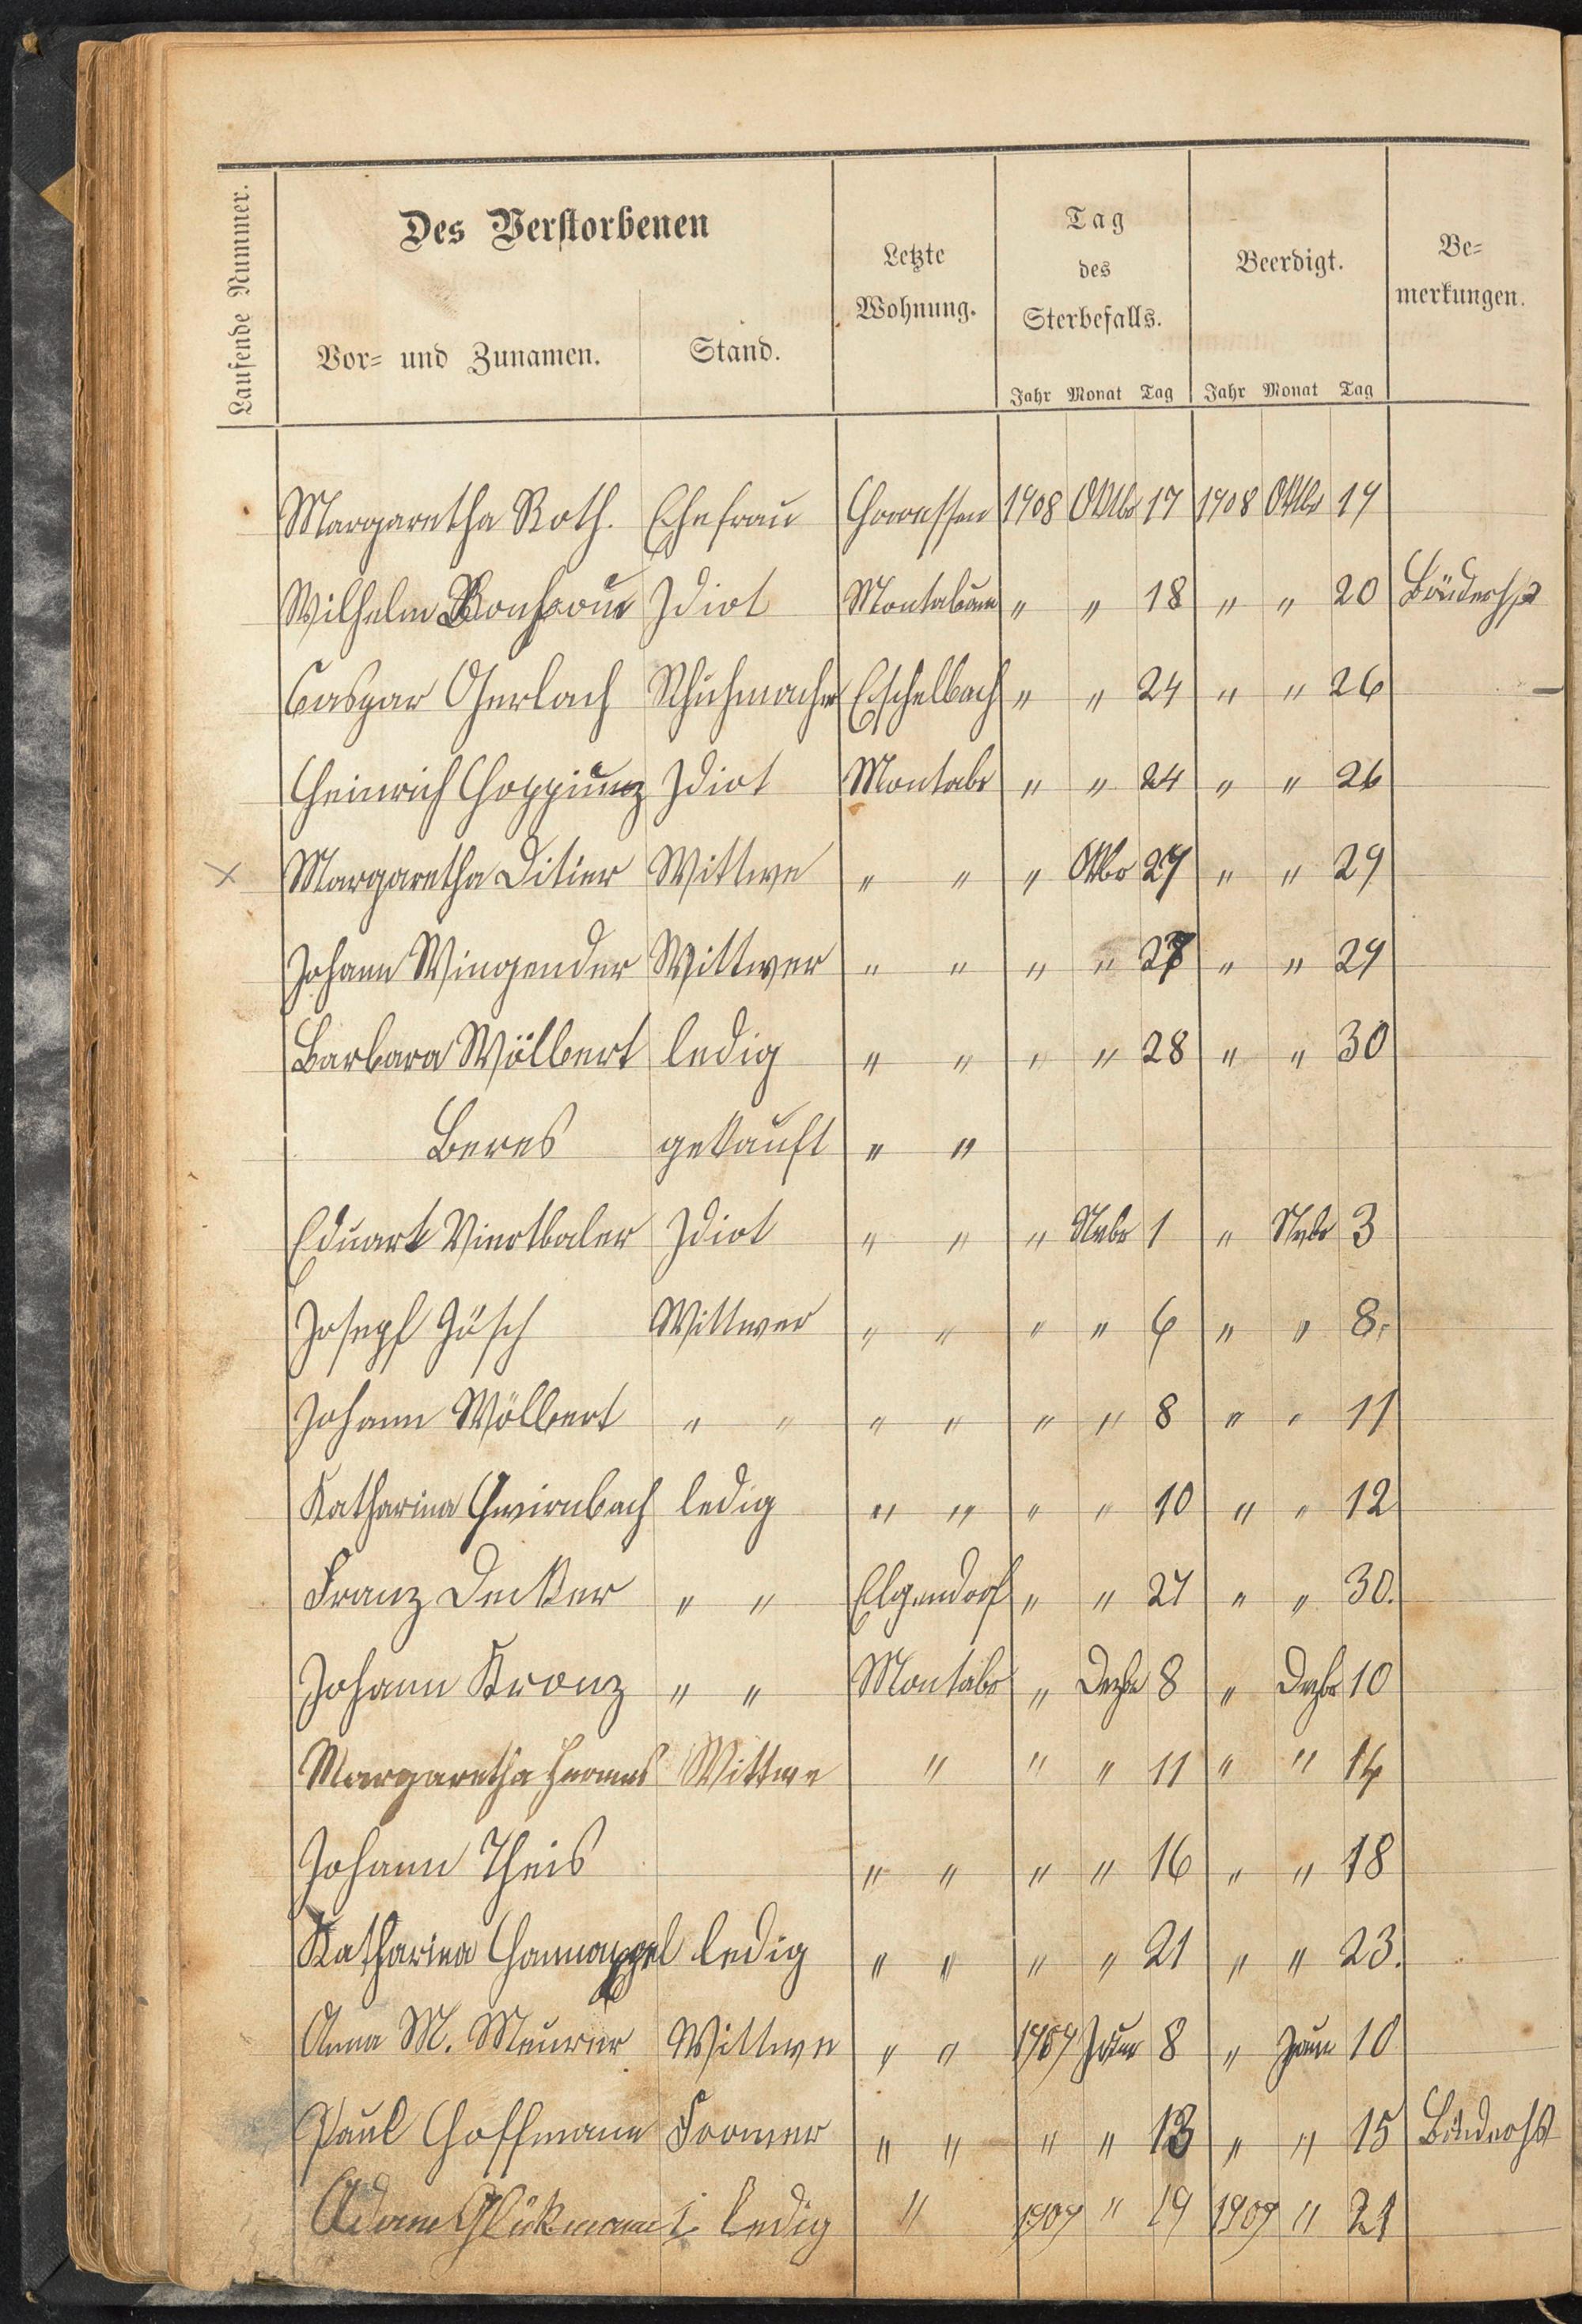 Laufende Nummer.
Des Verstorbenen
Vor- und Zunamen.
Stand.
Letzte
Wohnung.
Tag
des
Sterbefalls.
Beerdigt.
Be-
merkungen.
Jahr Monat Tag Jahr Monat Tag
Margaretha Roth. Ehefrau Horressen 1908 Oktbr 17 1908 Oktbr 19
Wilhelm Idiot Montabaur " " 18 " " 20 Brüderhs
Caspar Gerlach Schuhmacher Eschelbach " " 24 " " 26
Heinrich Idiot Montabr " " 24 " " 26
Margaretha Ditier Wittwe " " " Oktbr 27 " " 29
Johann Wingender Wittwer " " " " 27 " " 29
Barbara Wölbert ledig " " " " 28 " " 30
Beres getauft " "
Eduart Viertbaler Idiot " " " Nvbr 1 " Nvbr 3
Joseph Gösch Wittwer " " " " 6 " " 8.
Johann Wölbert " " " " " " 8 " " 11
Katharina Gwirnbach ledig " " " " 10 " " 12
Franz Decker " " Elgendorf " " 27 " " 30.
Johann Kronz " " Montabr " Dezbr 8 " Dezbr 10
Margaretha Hermes Wittwe " " " 11 " " 14
Johann Theis " " " " 16 " " 18
Katharina Hannappel ledig " " " " 21 " " 23.
Anna M. Meurer Wittwe " " 1909 Januar 8 " Janr 10
Paul Hoffmann Former " " " " 13 " " 15 Brüderhs
Adam Glückmann ledig " 1909 " 19 1909 " 21